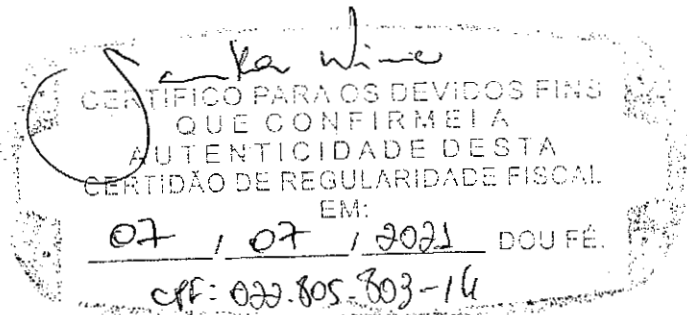 CERTIFICO PARA OS DEVIDOS FINS
QUE CONFIRMEI A
AUTENTICIDADE DESTA
CERTIDÃO DE REGULARIDADE FISCAL
EM:
07 / 07 / 2021 DOU FÉ.
CPF: 022.805.803-14